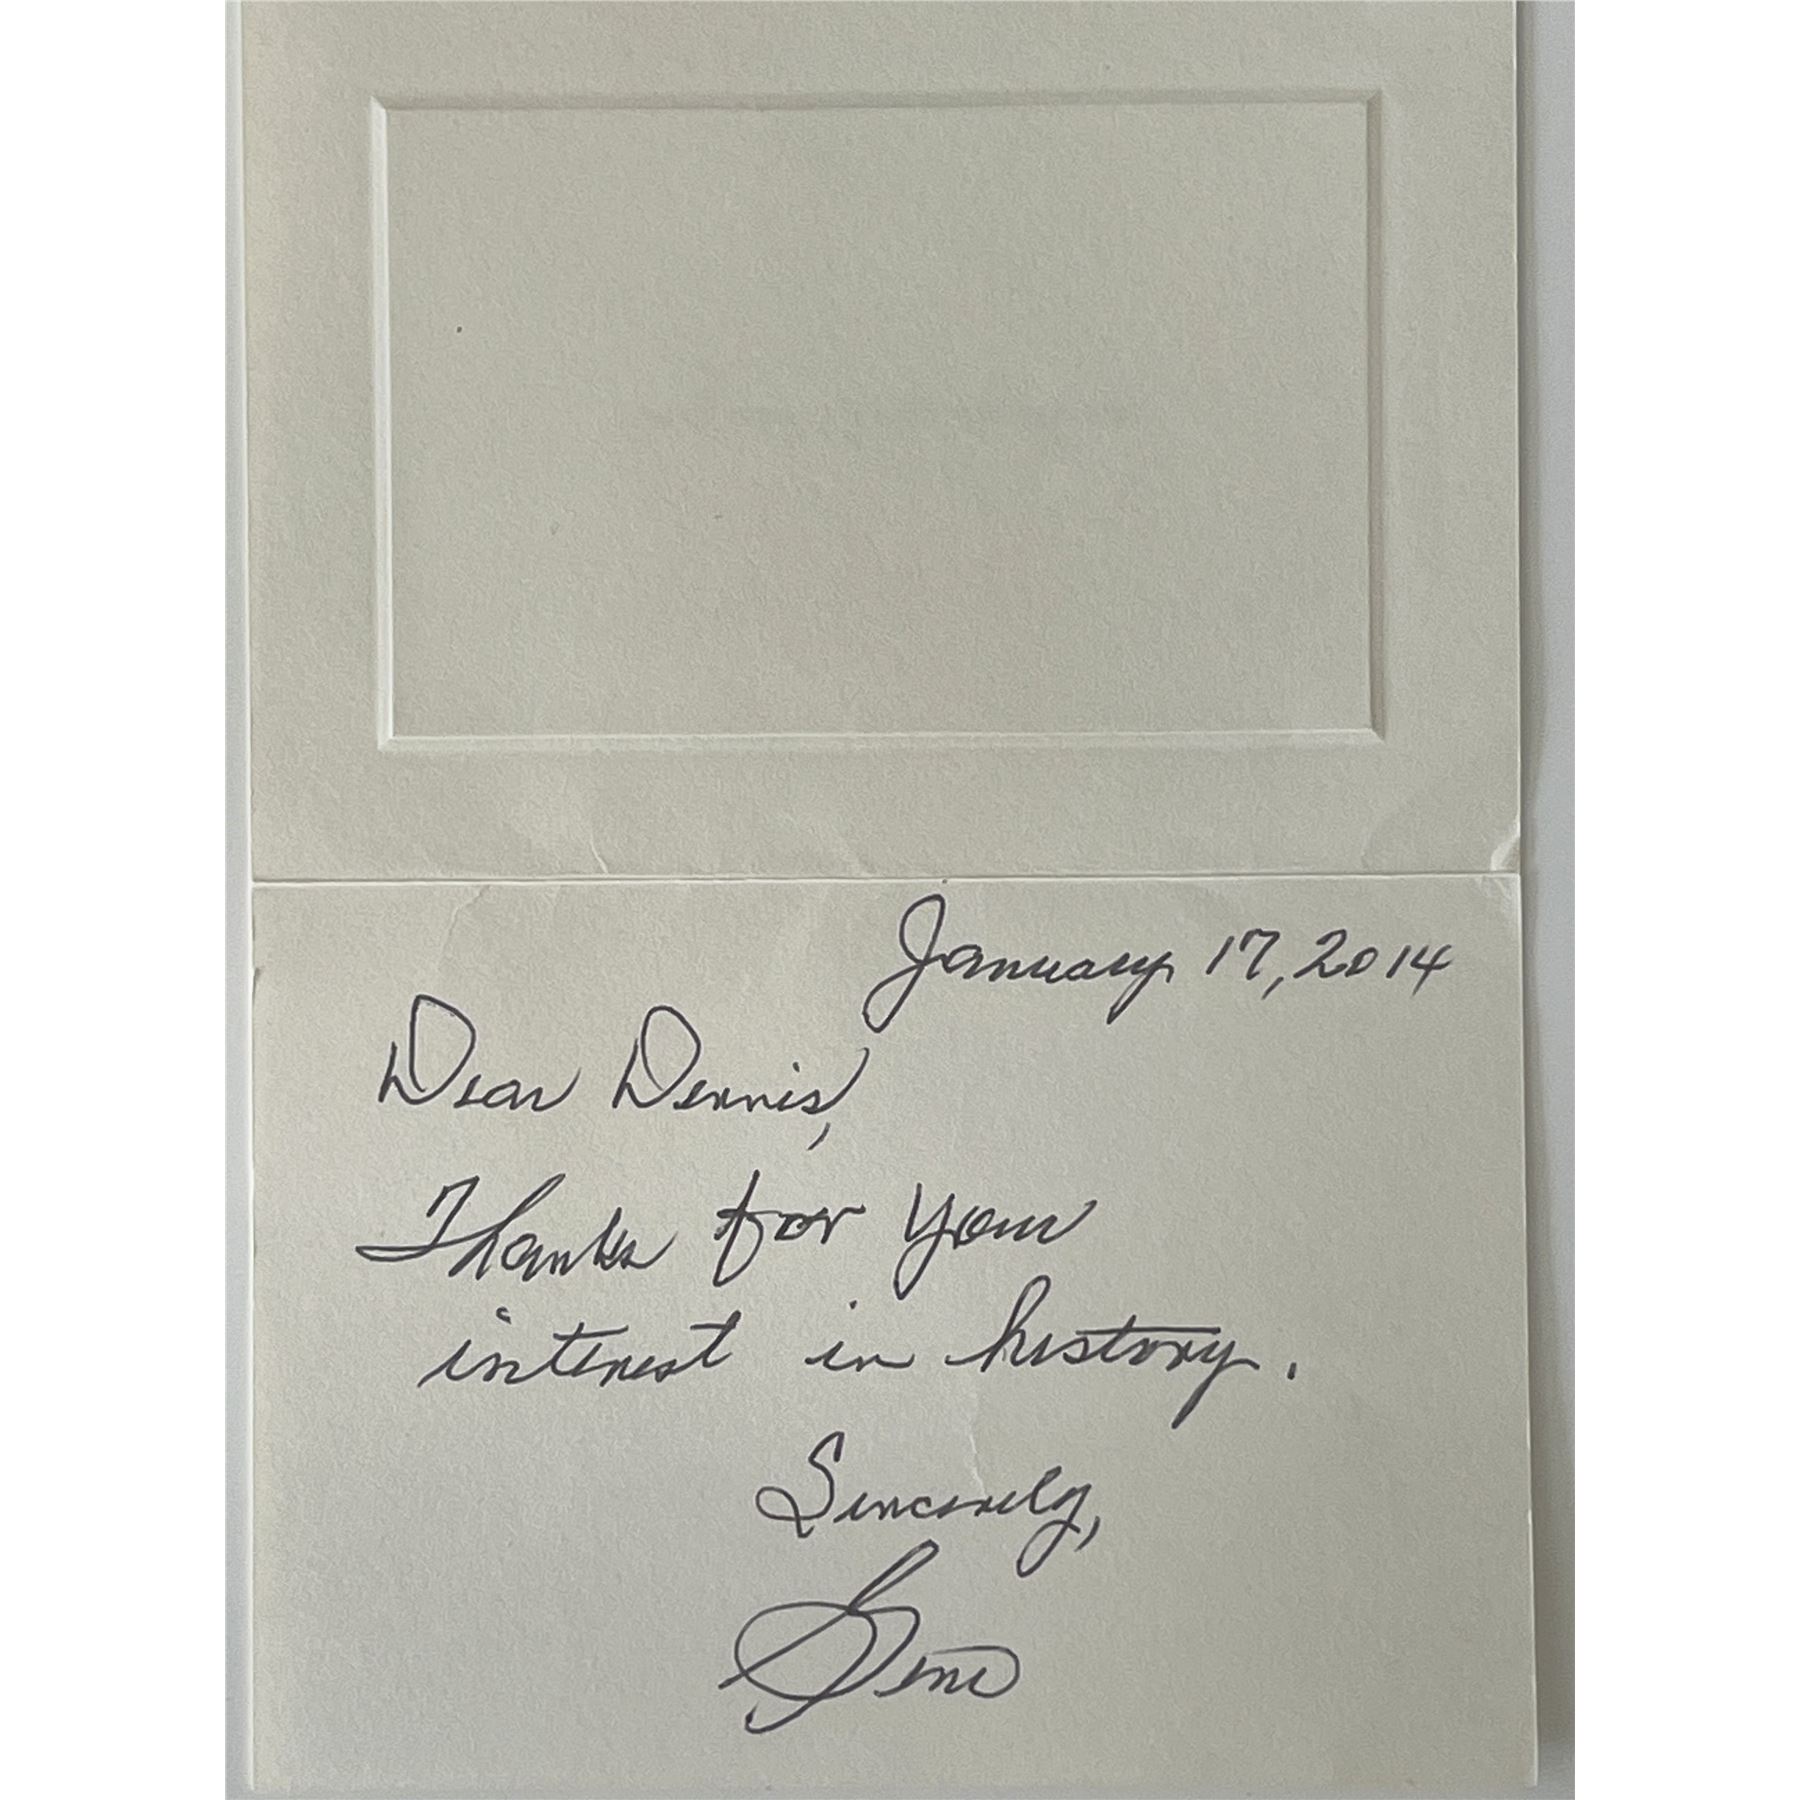 January 17, 2014
Dear Dennis,
Thanks for your
interest in history.
Sincerely,
Gene